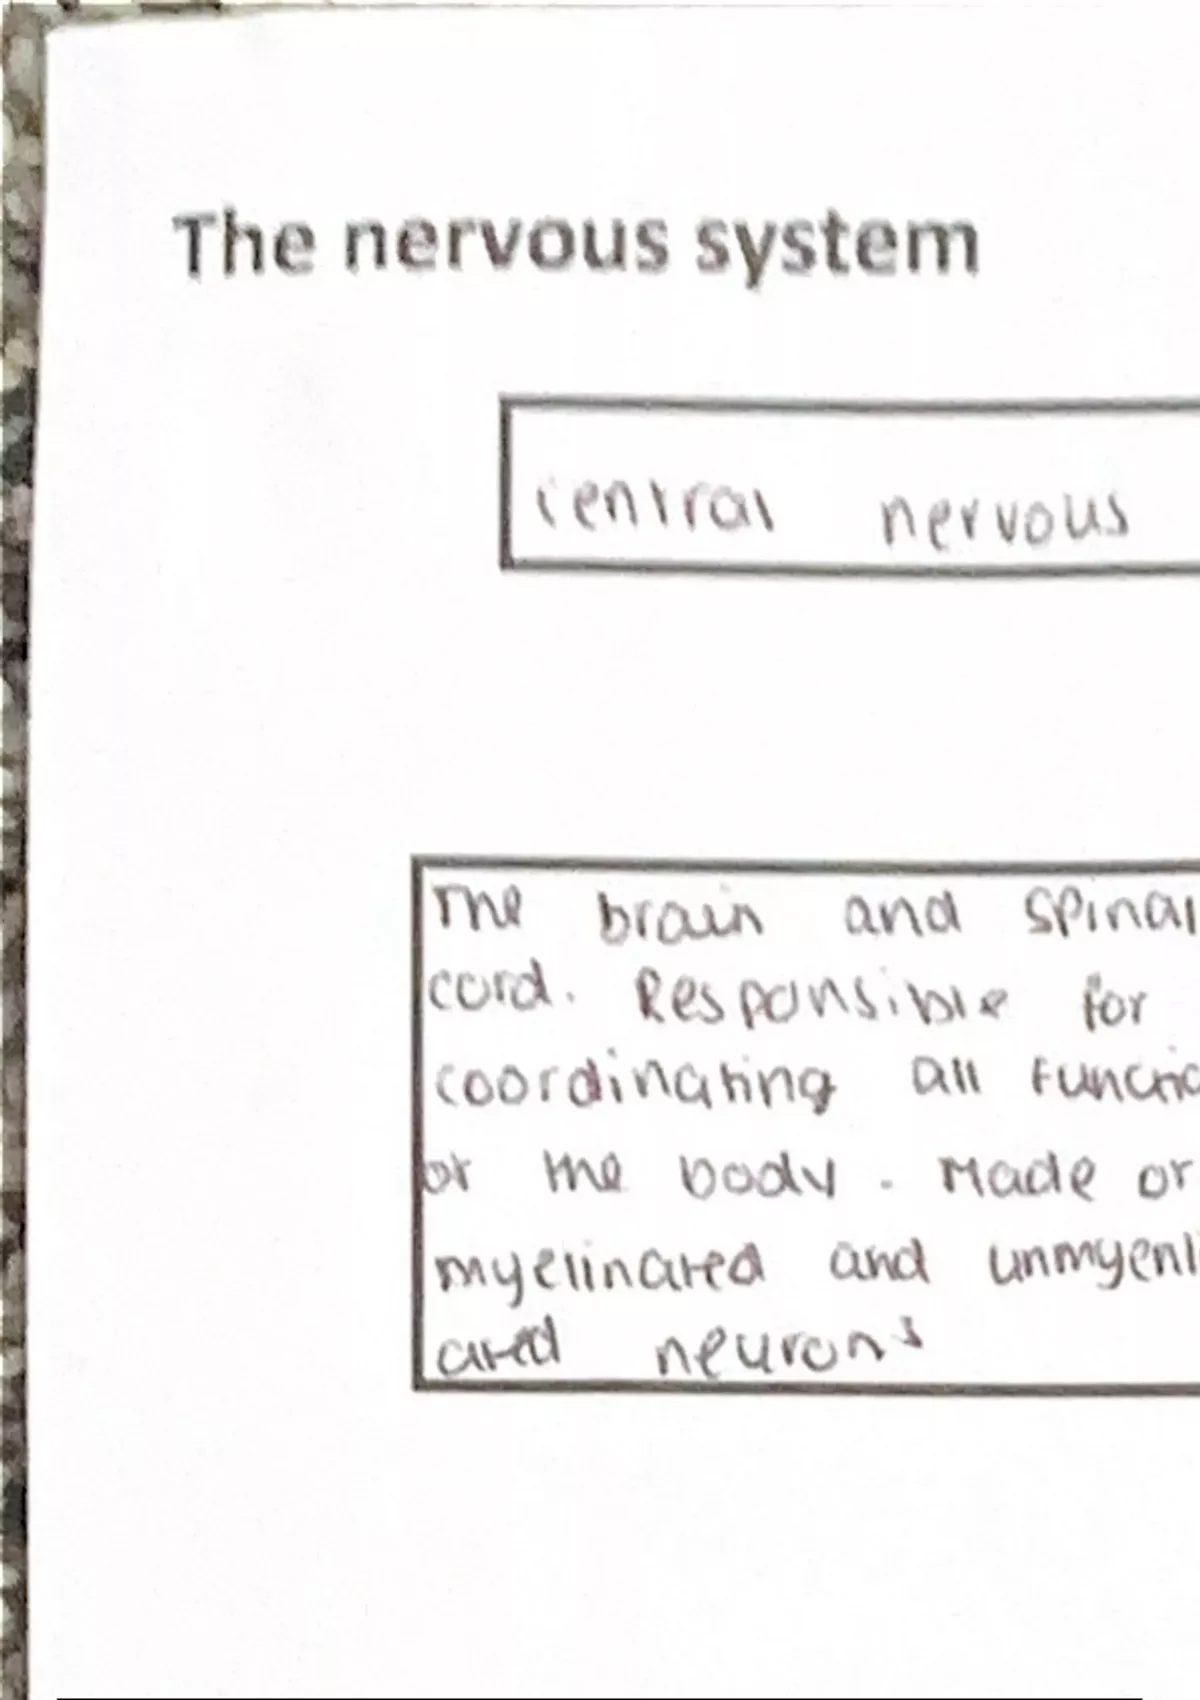 The nervous system
central nervous
The brain and spinal
cord. Responsible for
coordinating all functio
of the body. Made of
myelinated and unmyenli
ated neurons